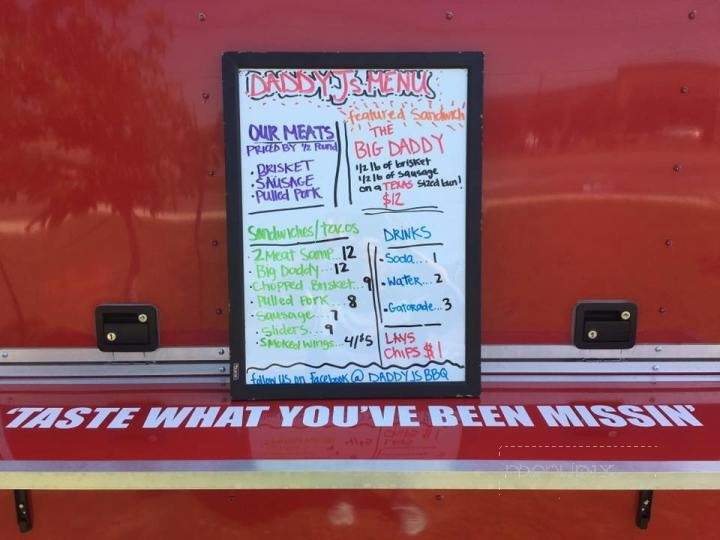 DADDY Js MENU
OUR MEATS
PRICED BY ½ Pound
· BRISKET
· SAUSAGE
· Pulled Pork
featured Sandwich
THE
BIG DADDY
1/2 lb of brisket
1/2 lb of sausage
on a TEXAS sized bun!
$12
Sandwiches/tacos
2 Meat Samp...12
· Big Daddy...12
· Chopped Brisket...9
· Pulled Pork...8
· Sausage...7
· Sliders...9
· Smoked Wings...4/$5
DRINKS
· Soda...1
· Water...2
· Gatorade...3
LAYS
CHIPS $1
follow US on facebook @ DADDYJSBBQ
'TASTE WHAT YOU'VE BEEN MISSIN'
menupix